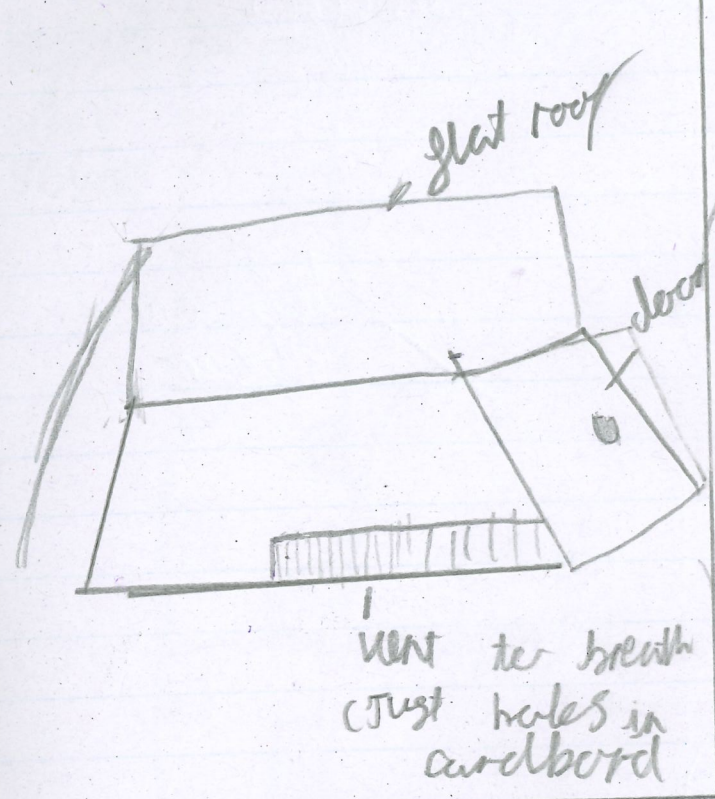 flat roof
door
vent to breath
(Just holes in
cardbord